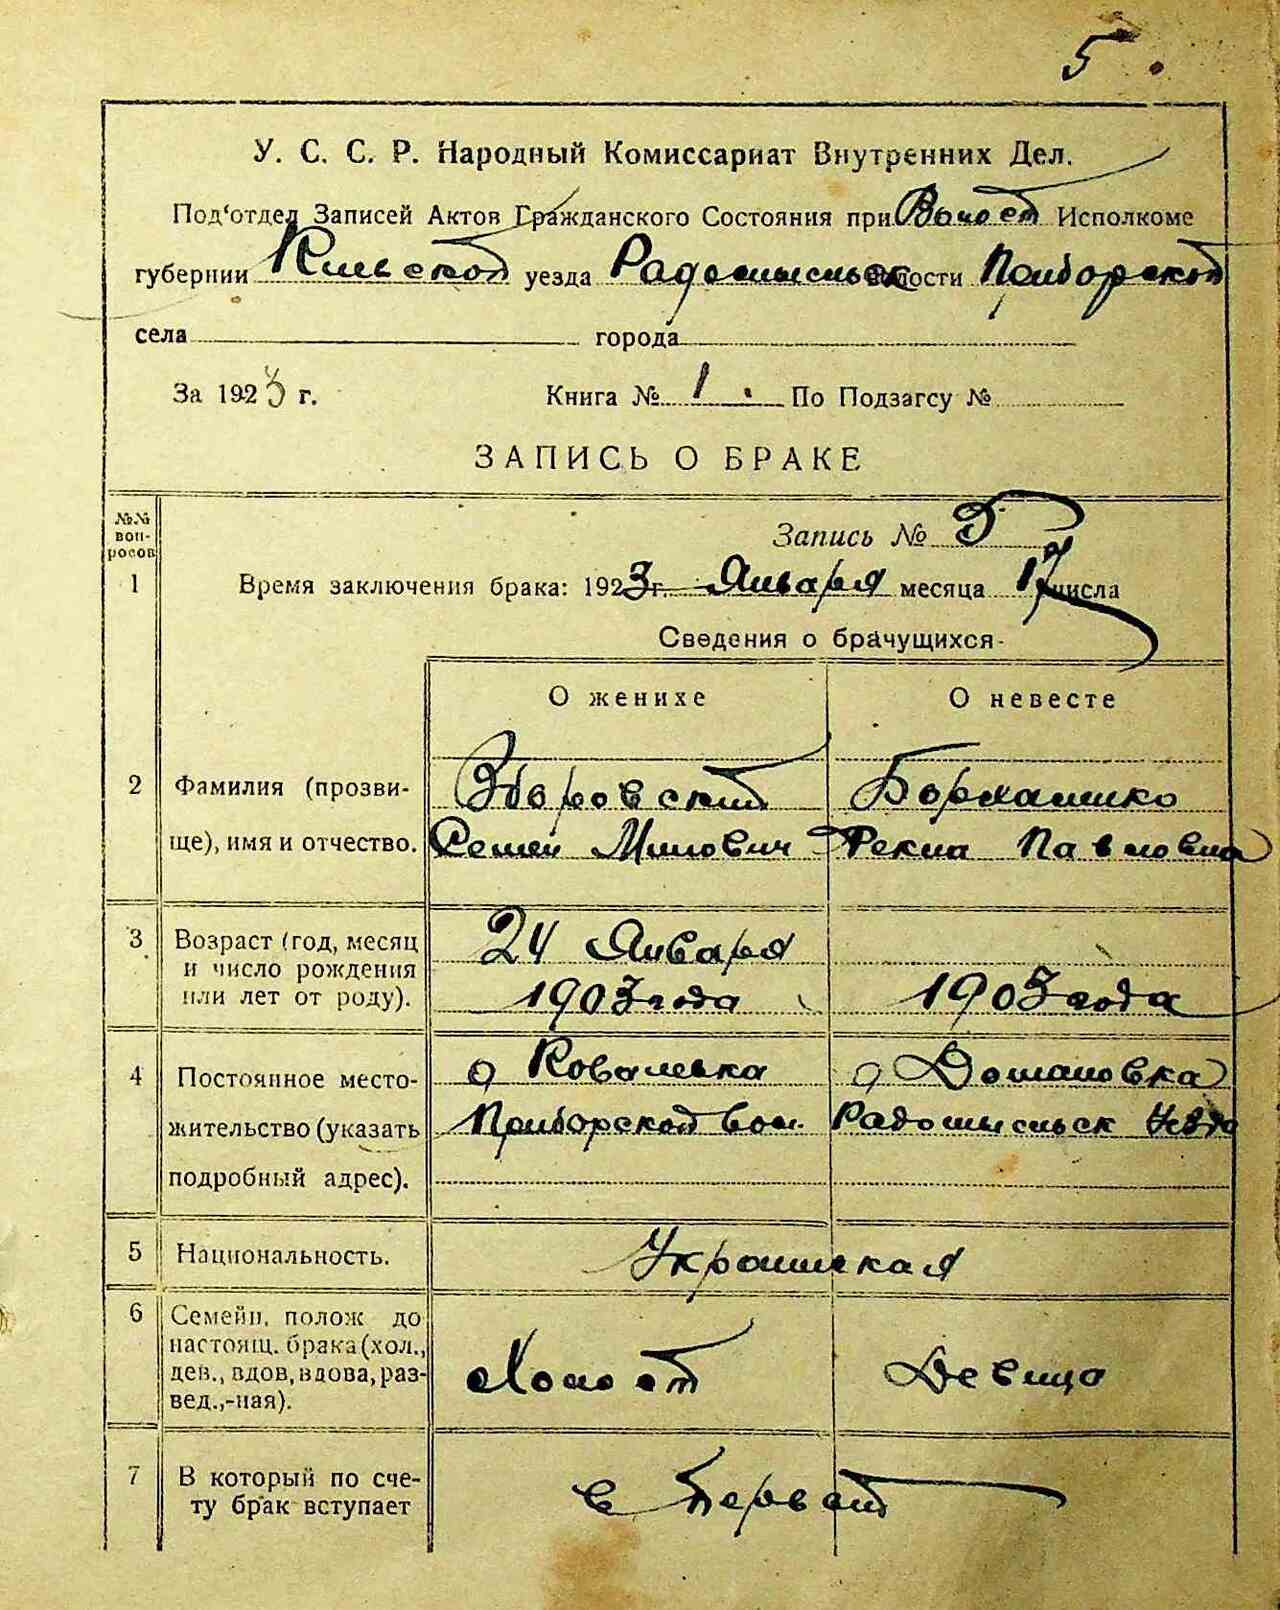 5.
У. С. С. Р. Народный Комиссариат Внутренних Дел.
Под'отдел Записей Актов Гражданского Состояния при Волост Исполкоме
губернии Киевской уезда Радомысльск волости Приборской
села города
За 1923 г. Книга № 1. По Подзагсу №
ЗАПИСЬ О БРАКЕ
№№ воп-росов
Запись № 5
1 Время заключения брака: 1923 г. Января месяца 17 числа
Сведения о брачущихся
О женихе О невесте
2 Фамилия (прозви- Зборовский
ще), имя и отчество. Семен Милович Фекла Павловна
3 Возраст (год, месяц 24 Января
и число рождения
или лет от роду). 1903 года 1903 года
4 Постоянное место- Ковалевка
жительство (указать Приборской вол. Радомысльск Уезда
подробный адрес).
5 Национальность.
6 Семейн. полож до
настоящ. брака (хол.,
дев., вдов, вдова, раз- Холост Девица
вед.,-ная).
7 В который по сче- в Первый
ту брак вступает